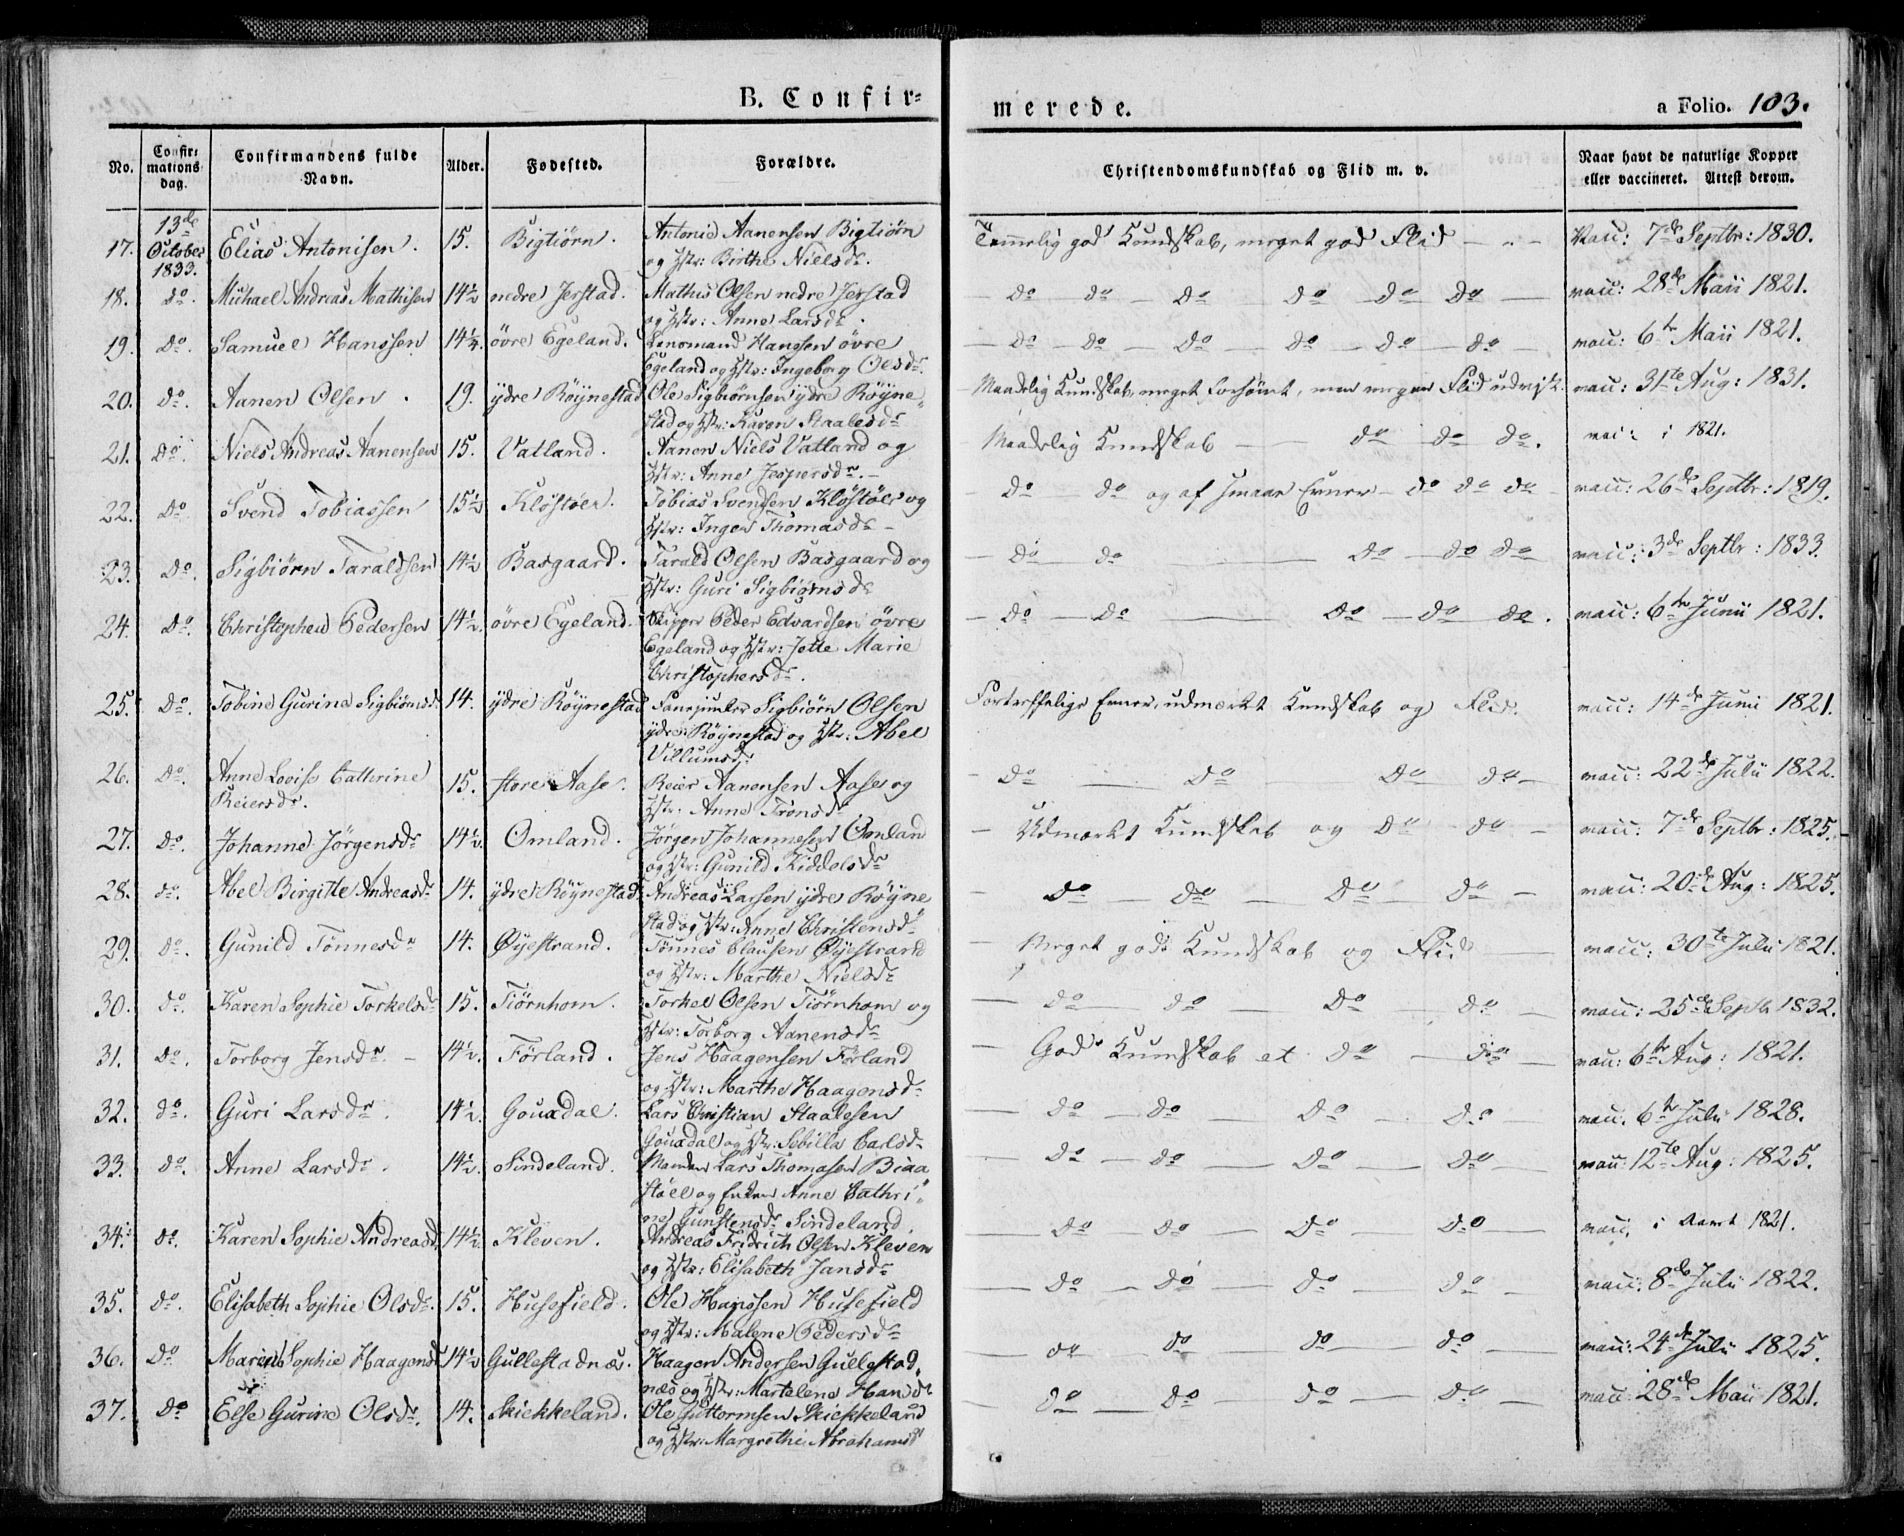 B. Confir=
merede.
a Folio. 103.
No.
Confir=
mations
dag.
Confirmandens fulde
Navn.
Alder.
Fødested.
Forældre.
Christendomskundskab og Flid m. v.
Naar havt de naturlige Kopper
eller vaccineret. Attest derom.
17. 13de October 1833. Elias Antonisen. 15. Bigtiörn. Antonie Aanensen Bigtiörn
og Hstr: Birthe Nielsdr.
Temmelig god Kundskab, meget god Flid Vacc: 7de Septbr: 1830.
18. do. Michael Andreas Mathisen 14½ nedre Jerstad. Mathis Olsen nedre Jerstad
og Hstr: Anne Larsdr.
do do do do do do vacc: 28de Maii 1821.
19. do. Samuel Hanssen 14¼. övre Egeland. Lensmand Hanssen övre
Egeland og Hstr: Ingeborg Olsdr.
do do do do do do vacc: 6te Maii 1821.
20. do. Aanen Olsen. 19. ydre Röynestad Ole Sigbiörnsen ydre Röyne
stad og Hstr: Karen Staalesdr
Maadelig Kundskab, meget forsömt, men megen Flid udvist. vacc: 31te Aug: 1831.
21. do. Niels Andreas Aanensen 15. Vatland. Aanen Niels Vatland og
Hstr: Anne Jespersdr.
Maadelig Kundskab do do do. vacc: i 1821.
22. do. Svend Tobiassen 15½ Klöstöel. Tobias Svendsen Klöstöel og
Hstr: Inger Thomasdr
do do og af smaae Evner do do do vacc: 26de Septbr: 1819.
23. do. Sigbiörn Taraldsen 14½ Basgaard. Tarald Olsen Basgaard og
Hstr: Guri Sigbiörnsdr
do do do do do vacc: 3de Septbr: 1833.
24. do. Christopher Pedersen 14½. övre Egeland. Skipper Peder Edvardsen övre
Egeland og Hstr: Jette Marie
Christophersdr.
do do do do do. vacc: 6te Junii 1821.
25. do. Tobine Gurine Sigbiörnsdr. 14. ydre Röynestad Fanejunker Sigbiörn Olsen
ydre Röynestad og Hstr: Abel
Villumsdr.
Fortreffelige Evner, udmærket Kundskab og Flid. vacc: 14de Junii 1821.
26. do. Anne Lovise Cathrine
Reiersdr. 15. store Aase. Reier Aanensen Aase og
Hstr. Anne Tronsdr
do do do do vacc: 22de Julii 1822.
27. do. Johanne Jörgensdr 14½. Omland. Jörgen Johannesen Omland
og Hstr: Gunild Kiddelsdr
Udmærket Kundskab og do do vacc: 7de Septbr: 1825.
28. do. Abel Birgitte Andreasdr 14. ydre Röynestad Andreas Larsen ydre Röyne
stad og Hstr: Anne Christensdr
do do do do vacc: 20de Aug: 1825.
29. do. Gunild Tönnesdr 14. Øyestrand. Tönnes Clausen Øyestrand
og Hstr: Marthe Nielsdr
Meget godt Kundskab og Flid vacc: 30te Julii 1821.
30. do. Karen Sophie Torkelsdr 15. Tiörnhom. Torkel Olsen Tiörnhom og
Hstr: Torborg Aanensdr
do do do do vacc: 25de Septbr 1832.
31. do. Torborg Jensdr. 14½. Förland. Jens Haagensen Förland
og Hstr: Marthe Haagensdr
God Kundskab et do do vacc: 6te Aug: 1821.
32. do. Guri Larsdr. 14½. Gouxdal. Lars Christian Staalesen
Gouxdal og Hstr: Sebilla Carlsdr
do do do do vacc. 6te Julii 1828.
33. do. Anne Larsdr. 14½. Sindeland. Manden Lars Thomasen Biaa
stöel og Enken Anne Cathri
ne Gunstensdr Sindeland.
do do do do vacc: 12te Aug: 1825.
34. do. Karen Sophie Andreasd. 14½ Kleven. Andreas Fridrich Olsen Kleven
og Hstr: Elisabeth Jansdr
do do do do vacc. i Aaret 1821.
35. do. Elisabeth Sophie Olsdr. 15. Husefield. Ole Hanssen Husefield
og Hstr: Malene Pedersdr
do do do do vacc: 8de Julii 1822.
36. do Maren Sophie Haagensd 14½ Gullestadnæs. Haagen Andersen Gullestad
næs og Hstr: Martelene Hansdr
do do do do vacc: 24de Julii 1825.
37. do Else Gurine Olsdr. 14. Skiekkeland. Ole Guttormsen Skiekkeland
og Hstr: Margrethe Abrahamsd
do do do do vacc: 28de Maii 1821.